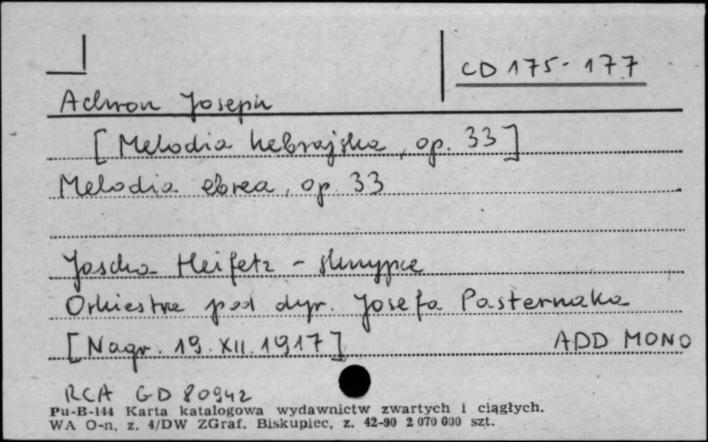 CD 175-177
Achron Joseph
[Melodia hebrajska, op. 33]
Melodia ebrea, op. 33
Jascha Heifetz - skrzypce
Orkiestra pod dyr. Josefa Pasternaka
[Nagr. 19.XII.1917]
ADD MONO
RCA GD 80942
Pu-B-144 Karta katalogowa wydawnictw zwartych i ciągłych.
WA O-n, z. 4/DW ZGraf. Biskupiec, z. 42-90 2 070 000 szt.